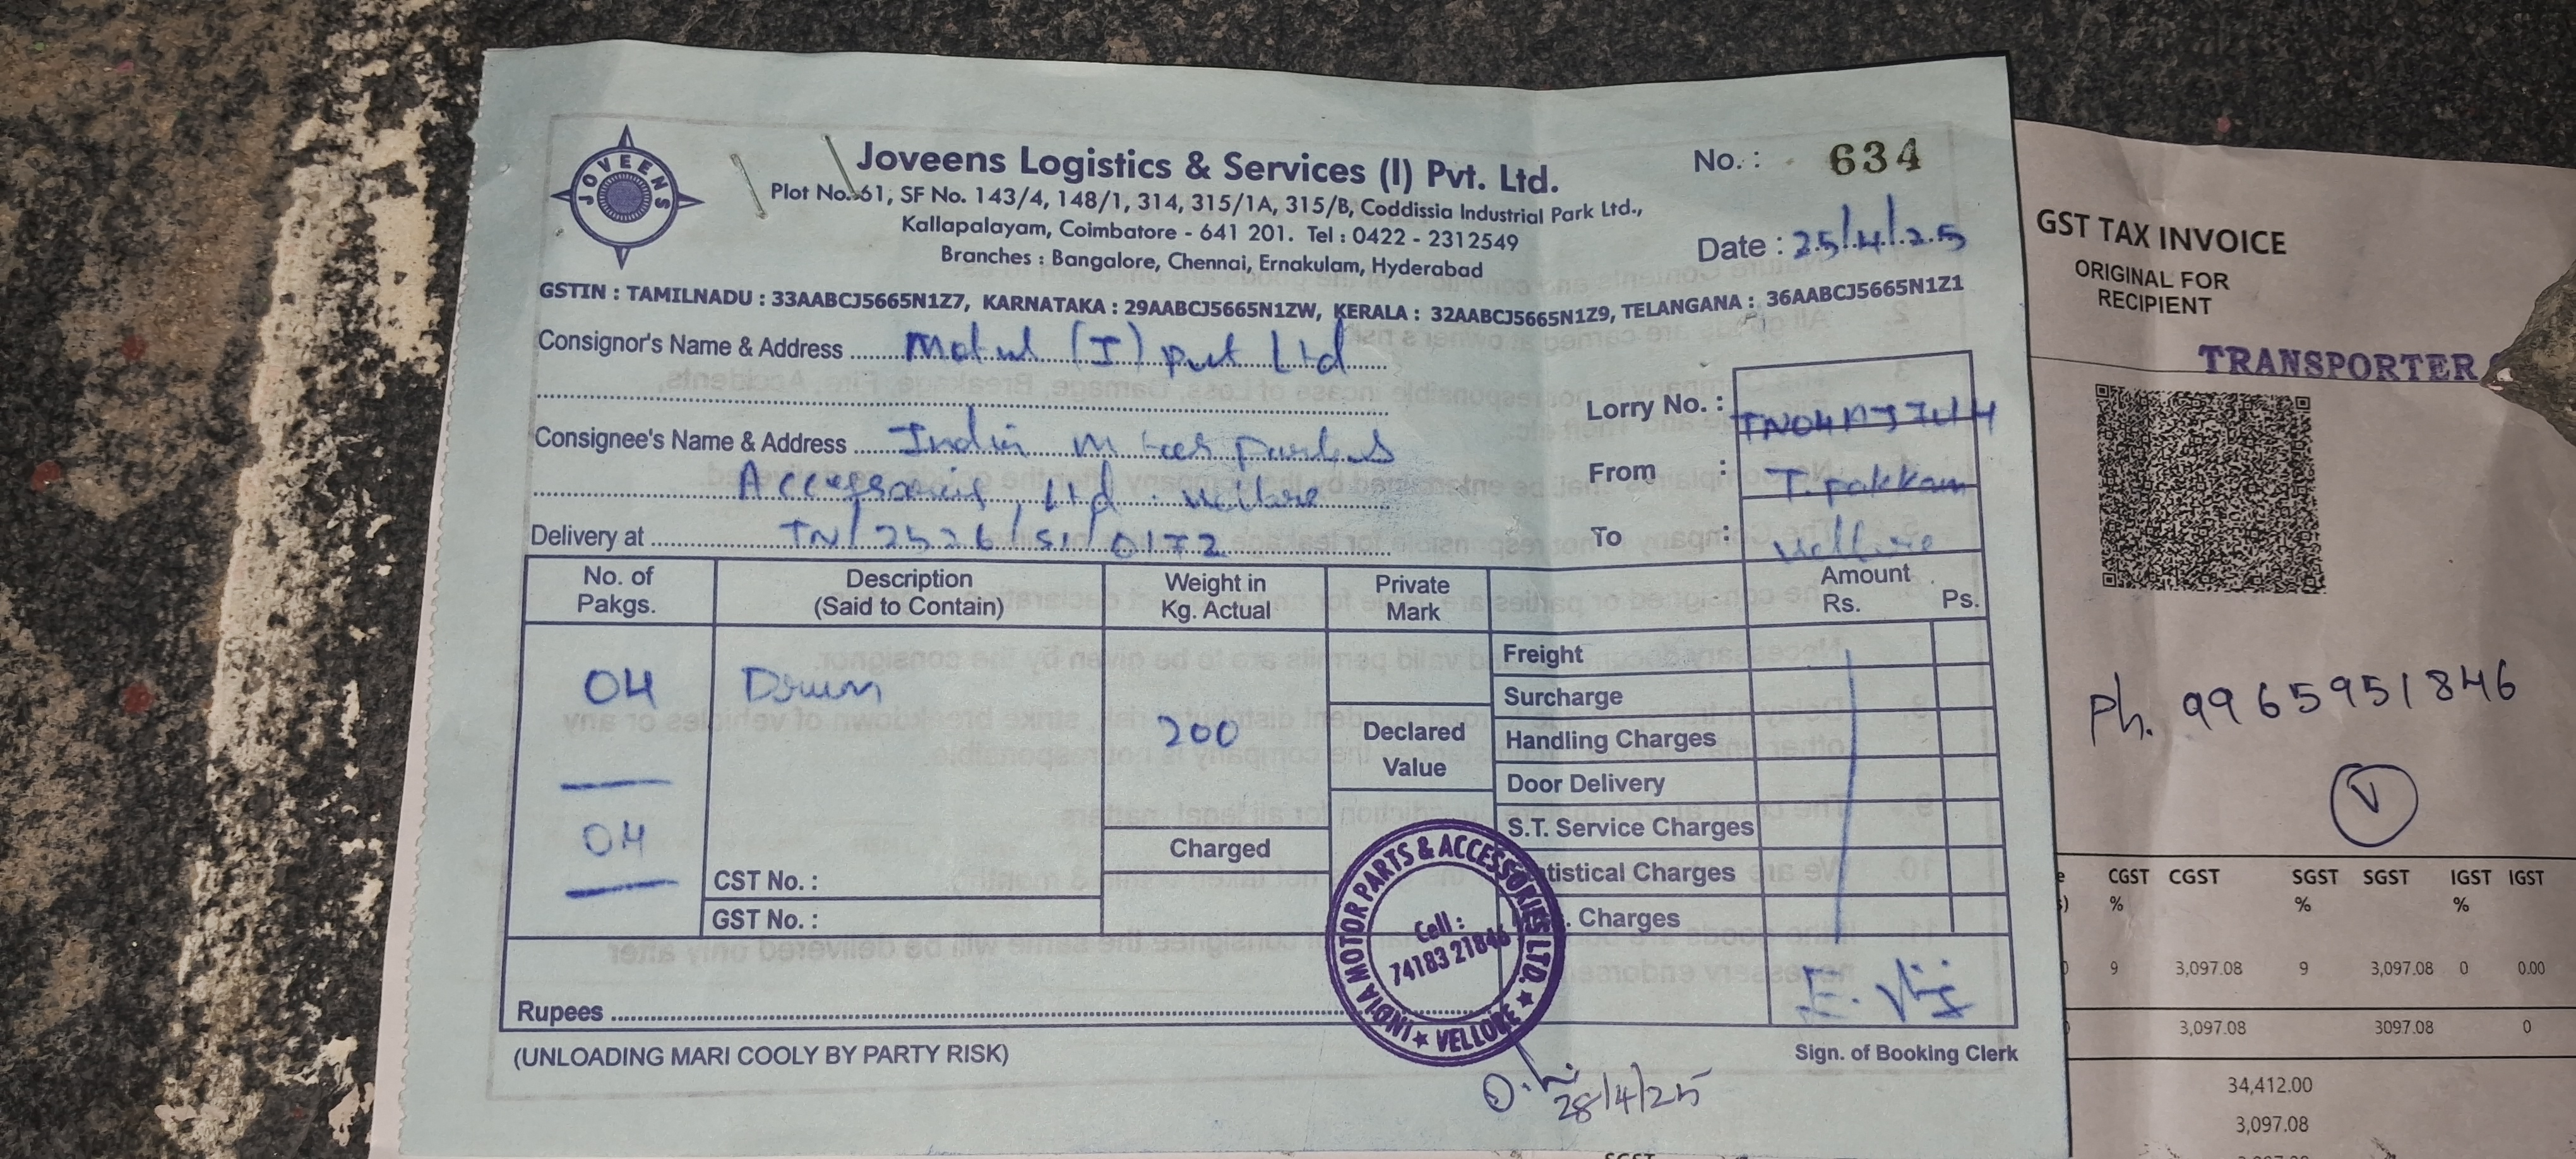 JOVEENS
Joveens Logistics & Services (I) Pvt. Ltd.
Plot No. 61, SF No. 143/4, 148/1, 314, 315/1A, 315/B, Coddissia Industrial Park Ltd.,
Kallapalayam, Coimbatore - 641 201. Tel : 0422 - 2312549
Branches : Bangalore, Chennai, Ernakulam, Hyderabad
No. : 634
Date : 25/4/25
GSTIN : TAMILNADU : 33AABCJ5665N1Z7, KARNATAKA : 29AABCJ5665N1ZW, KERALA : 32AABCJ5665N1Z9, TELANGANA : 36AABCJ5665N1Z1
Consignor's Name & Address Motul (I) Pvt Ltd
Consignee's Name & Address India Parts
Accessories Ltd. Vellore
Delivery at TN/2526/SI/0172
Lorry No. :
From : T. pakkam
To : Vellore
No. of Pakgs. Description (Said to Contain) Weight in Kg. Actual Private Mark Amount Rs. Ps.
04 Drum 200
04
Declared Value
Charged
CST No. :
GST No. :
Freight
Surcharge
Handling Charges
Door Delivery
S.T. Service Charges
Charges
Charges
Rupees
INDIA MOTOR PARTS & ACCESSORIES LTD. ★ VELLORE ★
Cell :
74183 21846
(UNLOADING MARI COOLY BY PARTY RISK)
Sign. of Booking Clerk
28/4/25
GST TAX INVOICE
ORIGINAL FOR
RECIPIENT
TRANSPORTER
Ph. 9965951846
V
CGST % CGST SGST % SGST IGST % IGST
9 3,097.08 9 3,097.08 0 0.00
3,097.08 3097.08 0
34,412.00
3,097.08